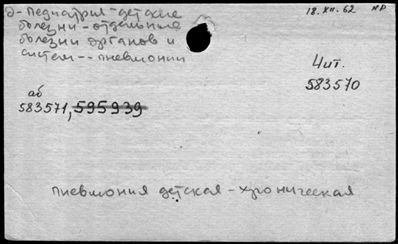 д - Педиатрия - детские
болезни - отдельные
болезни органов и
систем -- пневмонии
18.XII.62 НР
Чит.
583570
аб
583571, 595939
пневмония детская - хроническая